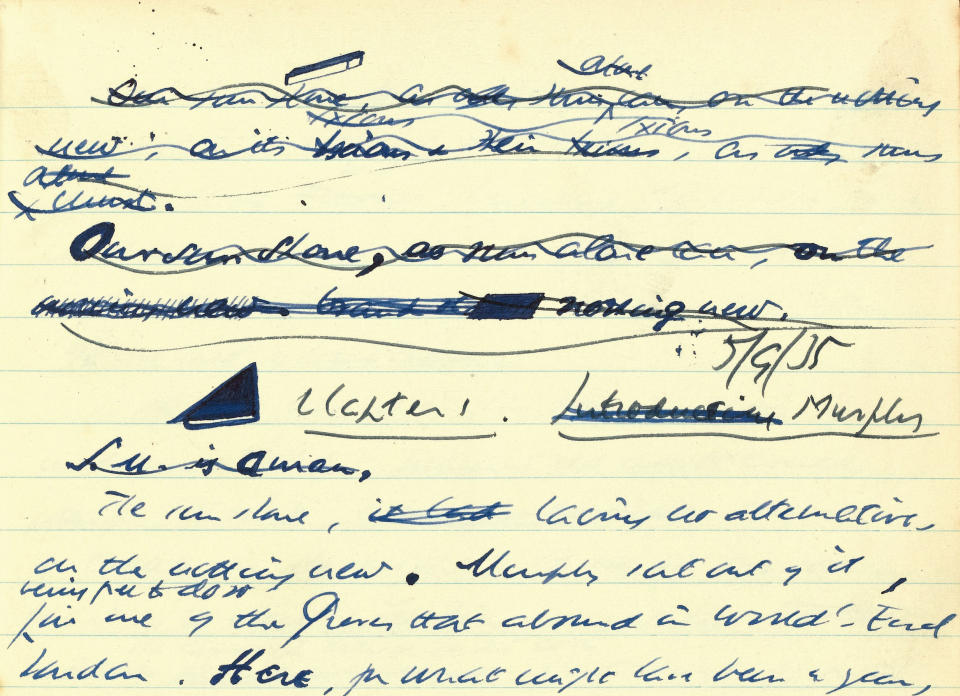 about
Our sun shone, as only sun can on the nothing
Ixions Ixions
new, on its & their, as only sun
about
Christ.
Our sun shone, as sun alone can, on the
nothing new.
5/9/35
Chapter 1. Introducing Murphy
is a man,
The sun shone, having no alternative,
on the nothing new. Murphy sat out of it,
being free to do so
in one of the Graves that abound in World's End
London. Here, for what might have been a year,